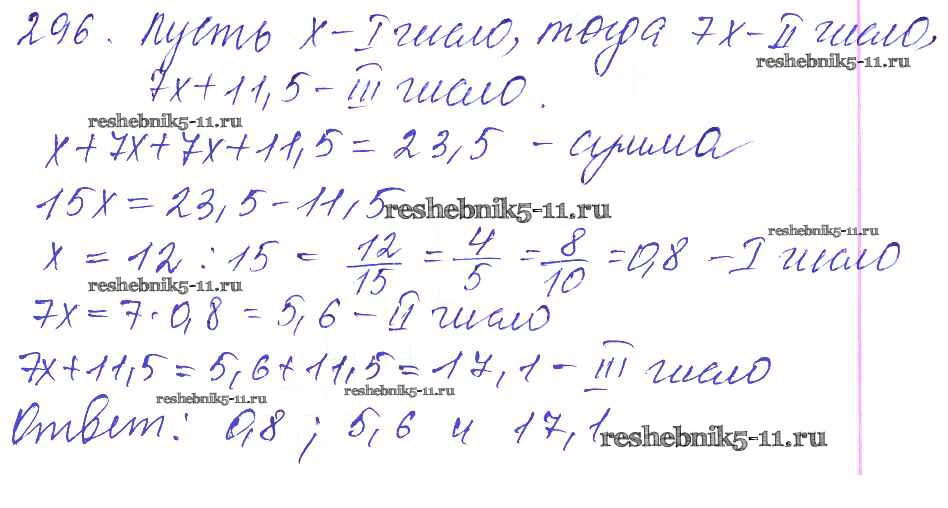 296. Пусть x - I число, тогда 7x - II число,
reshebnik5-11.ru
7x + 11,5 - III число.
reshebnik5-11.ru
x + 7x + 7x + 11,5 = 23,5 - сумма
15x = 23,5 - 11,5
reshebnik5-11.ru
reshebnik5-11.ru
x = 12 : 15 = 12/15 = 4/5 = 8/10 = 0,8 - I число
reshebnik5-11.ru
7x = 7 · 0,8 = 5,6 - II число
7x + 11,5 = 5,6 + 11,5 = 17,1 - III число
reshebnik5-11.ru
reshebnik5-11.ru
Ответ: 0,8; 5,6 и 17,1
reshebnik5-11.ru